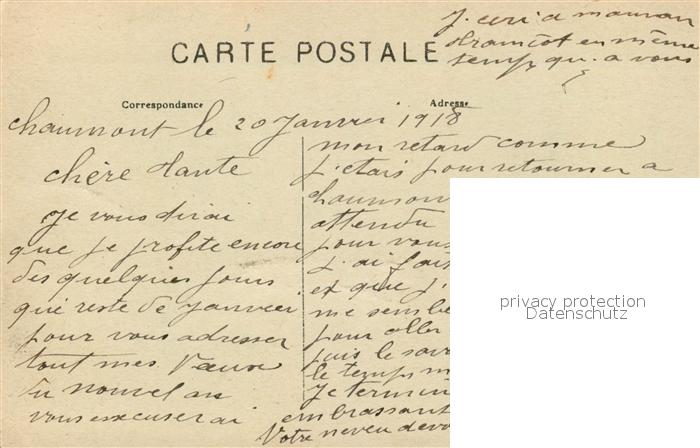 J. ceri a maman
en même
temps qu. a vous
CARTE POSTALE
Correspondance
Adresse
chaumont le 20 Janvier 1918
chère tante
Je vous dirai
que je profite encore
des quelques jours
qui reste de janvier
pour vous adresser
tout mes vœux
du nouvel an
vous excuserai
mon retard comme
j. etais pour retourner a
chaumon
attendu
pour vous
j. ai fais
ex que j'
me semble
pour aller
puis le soir
le temps m
Je termin
embrassant
Votre neveu devo
privacy protection
Datenschutz